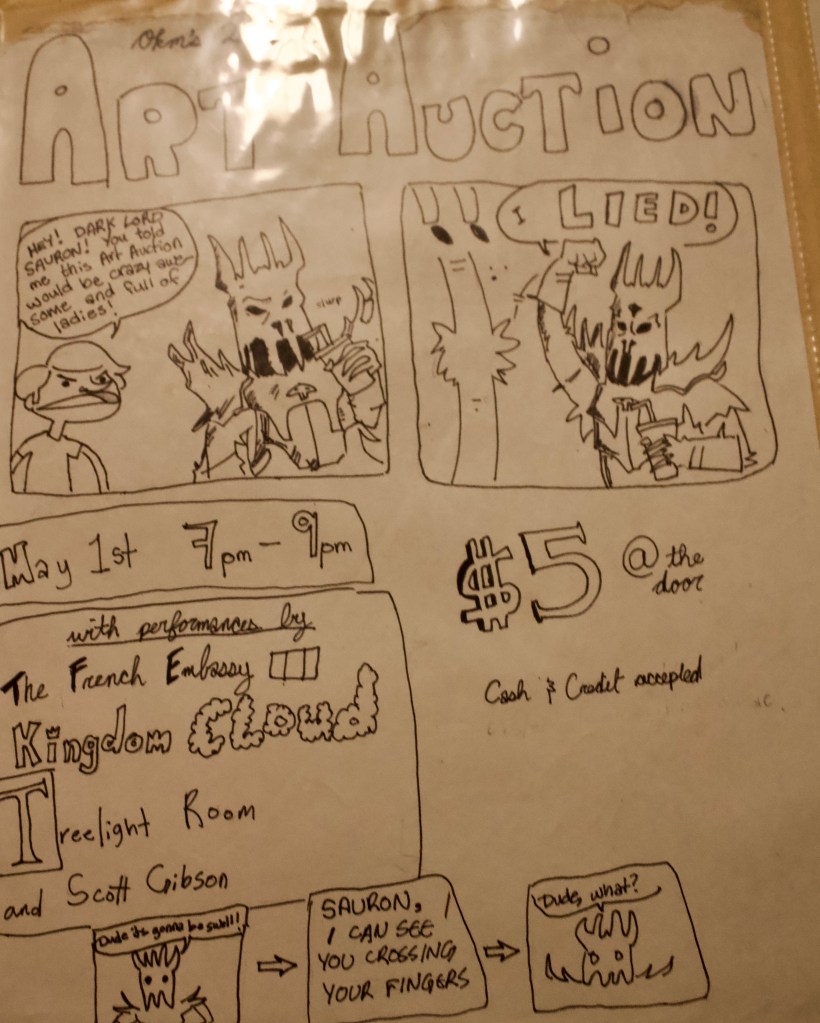 Ohm's
ART AUCTION
HEY! DARK LORD
SAURON! You told
me this Art Auction
would be crazy awe-
some and full of
ladies!
slurp
I LIED!
May 1st 7pm - 9pm
$5 @ the
door
with performances by
The French Embassy
Kingdom Cloud
Treelight Room
and Scott Gibson
Cash & Credit accepted
Dude it's gonna be
SAURON,
I CAN SEE
YOU CROSSING
YOUR FINGERS
Dude, what?